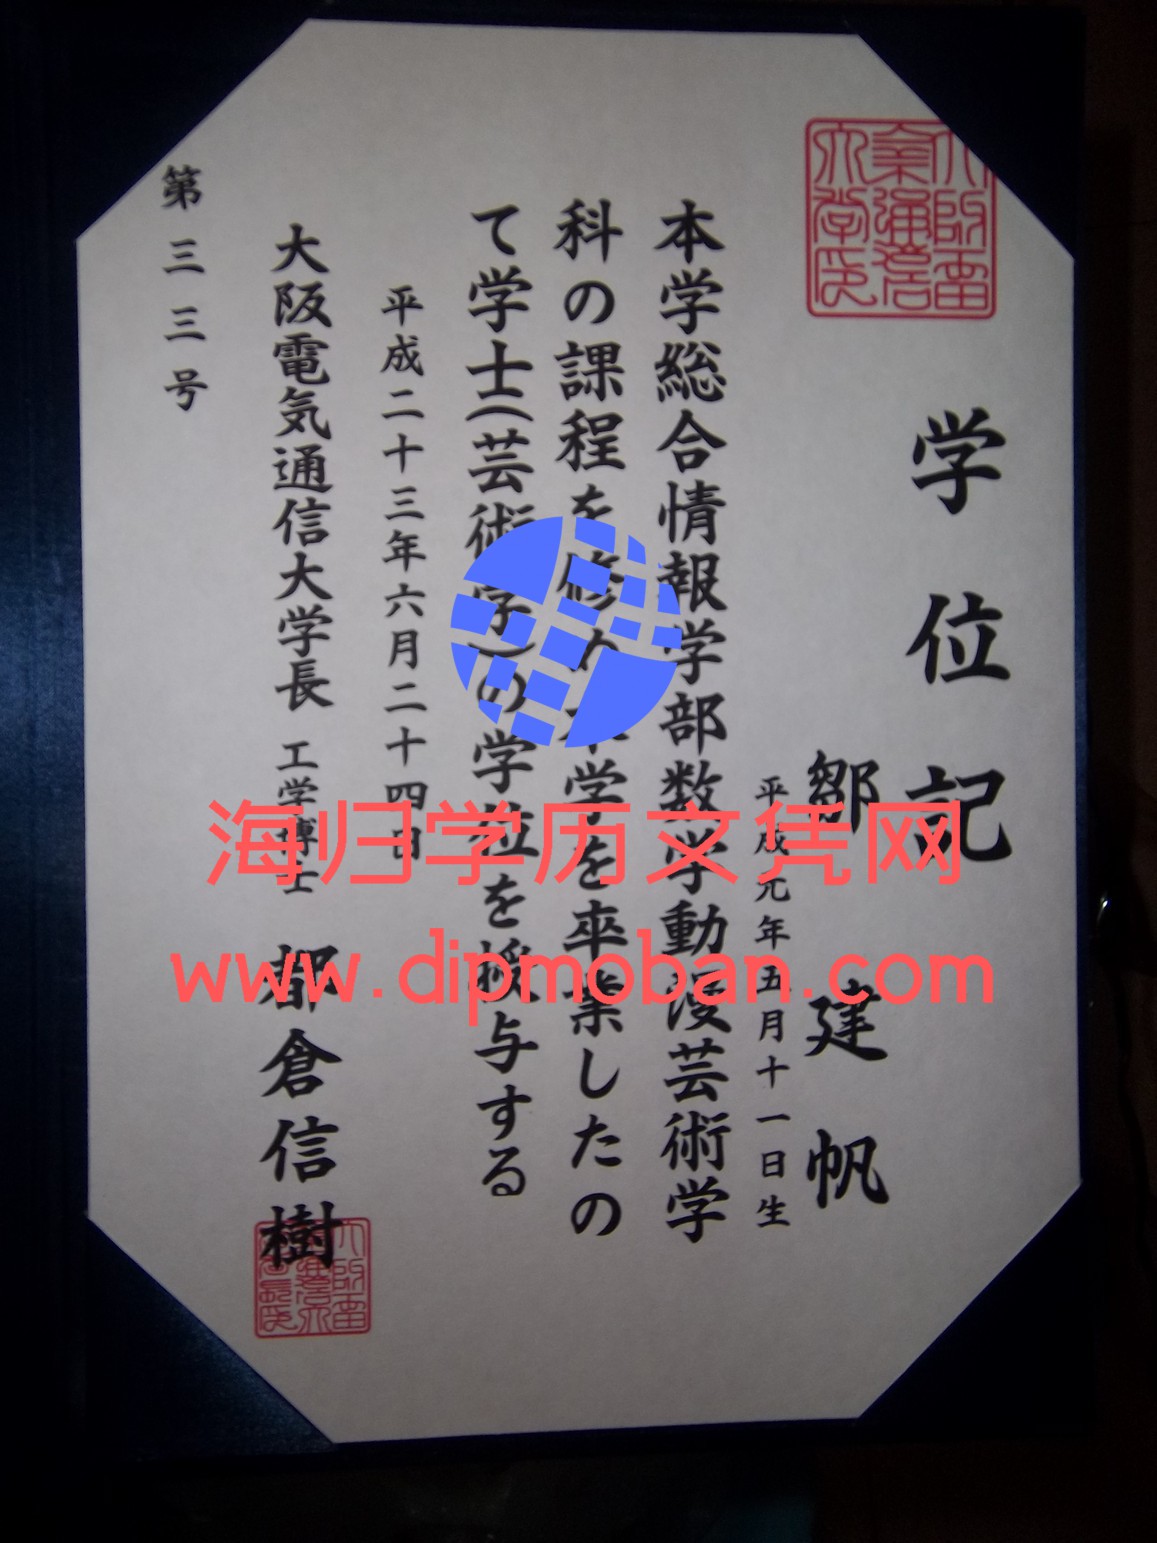 学位記
鄒建帆
平成元年五月十一日生
本学総合情報学部数学動漫芸術学
科の課程を修め本学を卒業したの
て学士(芸術学)の学位を授与する
平成二十三年六月二十四日
大阪電気通信大学長 工学博士 都倉信樹
第三三号
海归学历文凭网
www.dipmoban.com